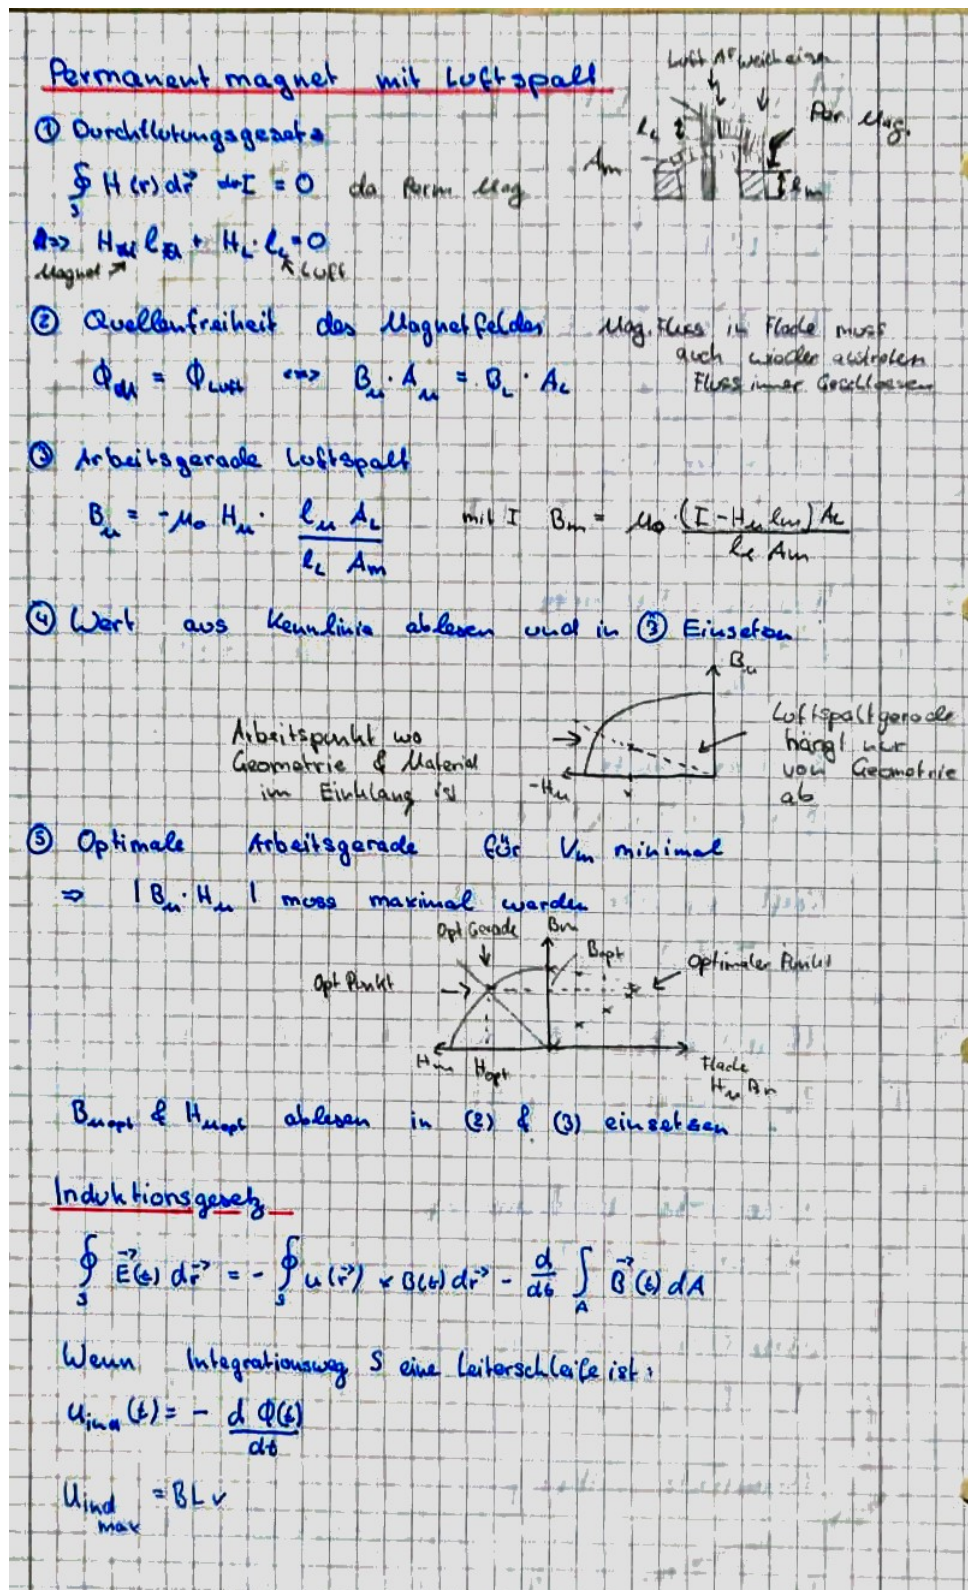 Permanentmagnet mit Luftspalt
Luft AF weicheisen
Per Mag.
lL
Am
lm
① Durchflutungsgesetz
∮S H(r) dr⃗ = 0 da Perm Mag
=> HM lM + HL · lL = 0
Magnet Luft
② Quellenfreiheit des Magnetfeldes
Mag. Fluss in Fläche muss
auch wieder austreten
Fluss immer Geschlossen
ΦM = ΦLuft <=> BM · AM = BL · AL
③ Arbeitsgerade Luftspalt
BM = -μ0 HM · lM AL / lL Am
mit I Bm = μ0 · (I - HM lm) AL / lL Am
④ Wert aus Kennlinie ablesen und in ③ Einsetzen
BM
Arbeitspunkt wo
Geometrie & Material
im Einklang ist
-HM
Luftspaltgerade
hängt nur
von Geometrie
ab
⑤ Optimale Arbeitsgerade für Vm minimal
=> | BM · HM | muss maximal werden
Opt Gerade
Bm
Bopt
Optimaler Punkt
Opt Punkt
Hm
Hopt
Fläche
HM Bm
BMopt & HMopt ablesen in (2) & (3) einsetzen
Induktionsgesetz
∮S E⃗(t) dr⃗ = - ∮S u(r⃗) × B(t) dr⃗ - d/dt ∫A B⃗(t) dA
Wenn Integrationsweg S eine Leiterschleife ist:
uind(t) = - d Φ(t) / dt
Uind max = BLv